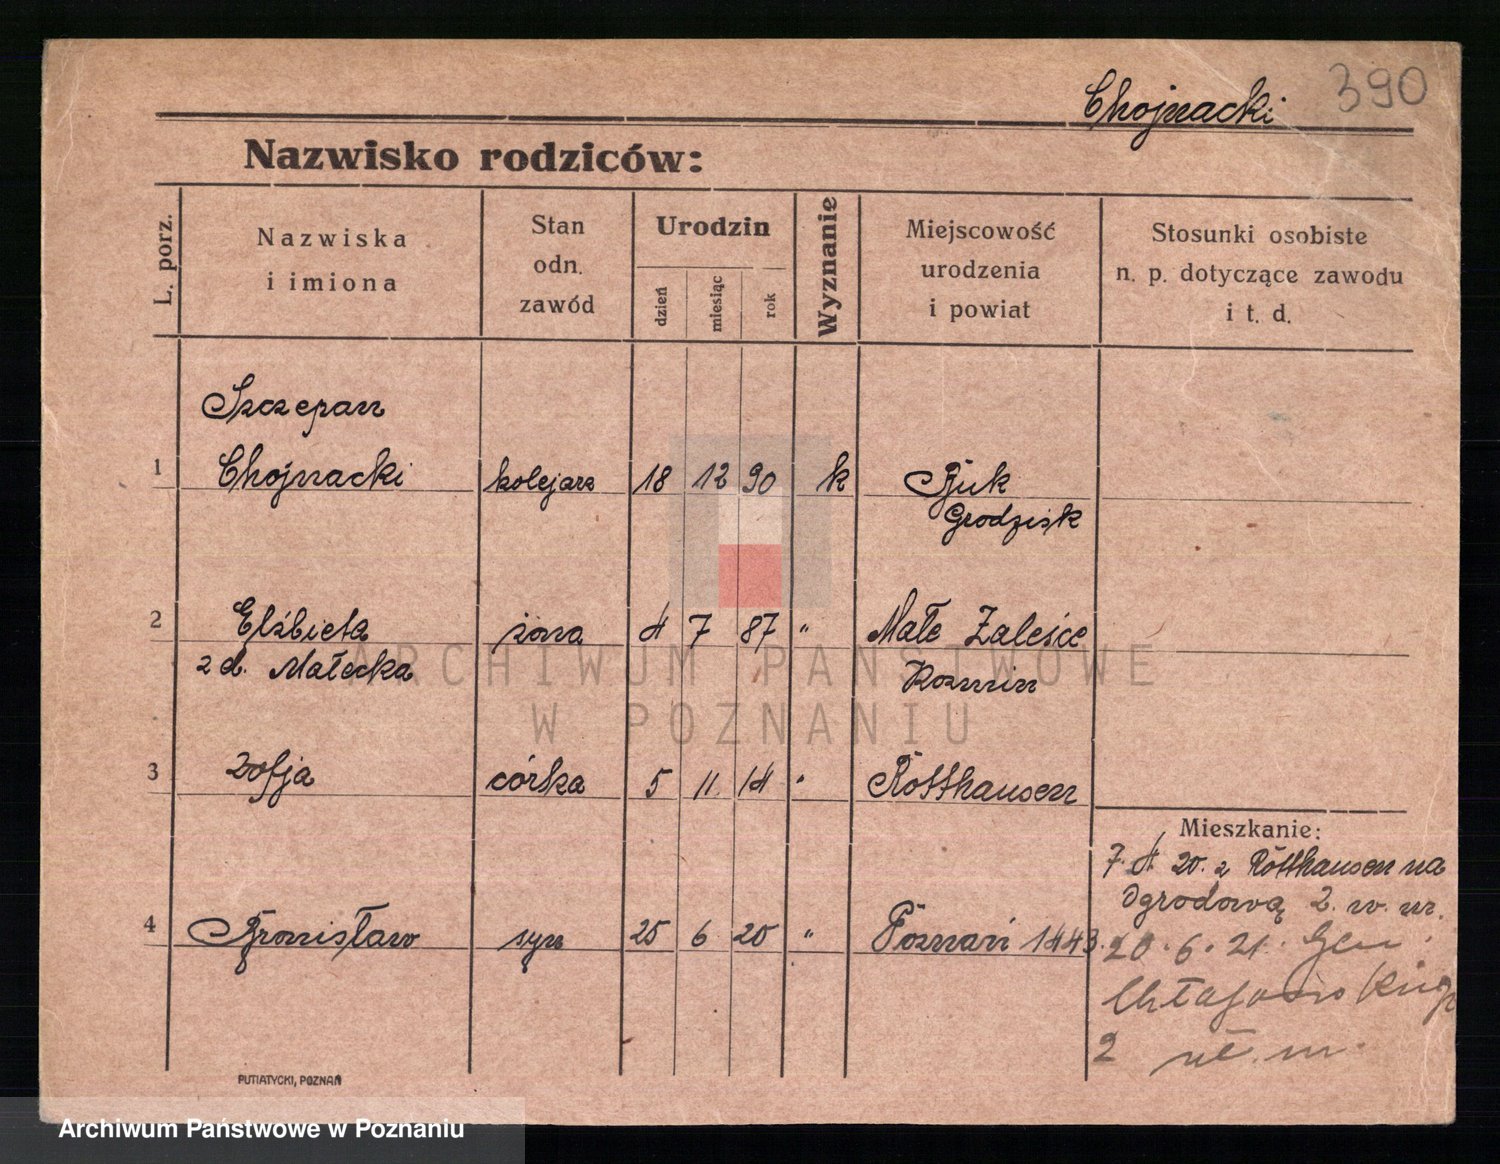 Chojnacki 390
Nazwisko rodziców:
L. porz.
Nazwiska
i imiona
Stan
odn.
zawód
Urodzin
dzień
miesiąc
rok
Wyznanie
Miejscowość
urodzenia
i powiat
Stosunki osobiste
n. p. dotyczące zawodu
i t. d.
Szczepan
1 Chojnacki kolejarz 18 12 90 k Buk
Grodzisk
2 Elżbieta żona 4 7 87 " Małe Zalesie
z d. Małecka Kozmin
3 Zofja córka 5 11 14 " Rotthausen
4 Bronisław syn 25 6 20 " Poznań 1443
Mieszkanie:
7. 4. 20. z Rotthausen na
Ogrodową 2. w. w.
20. 6. 21.
2
PUTIATYCKI, POZNAŃ
ARCHIWUM PAŃSTWOWE
W POZNANIU
Archiwum Państwowe w Poznaniu